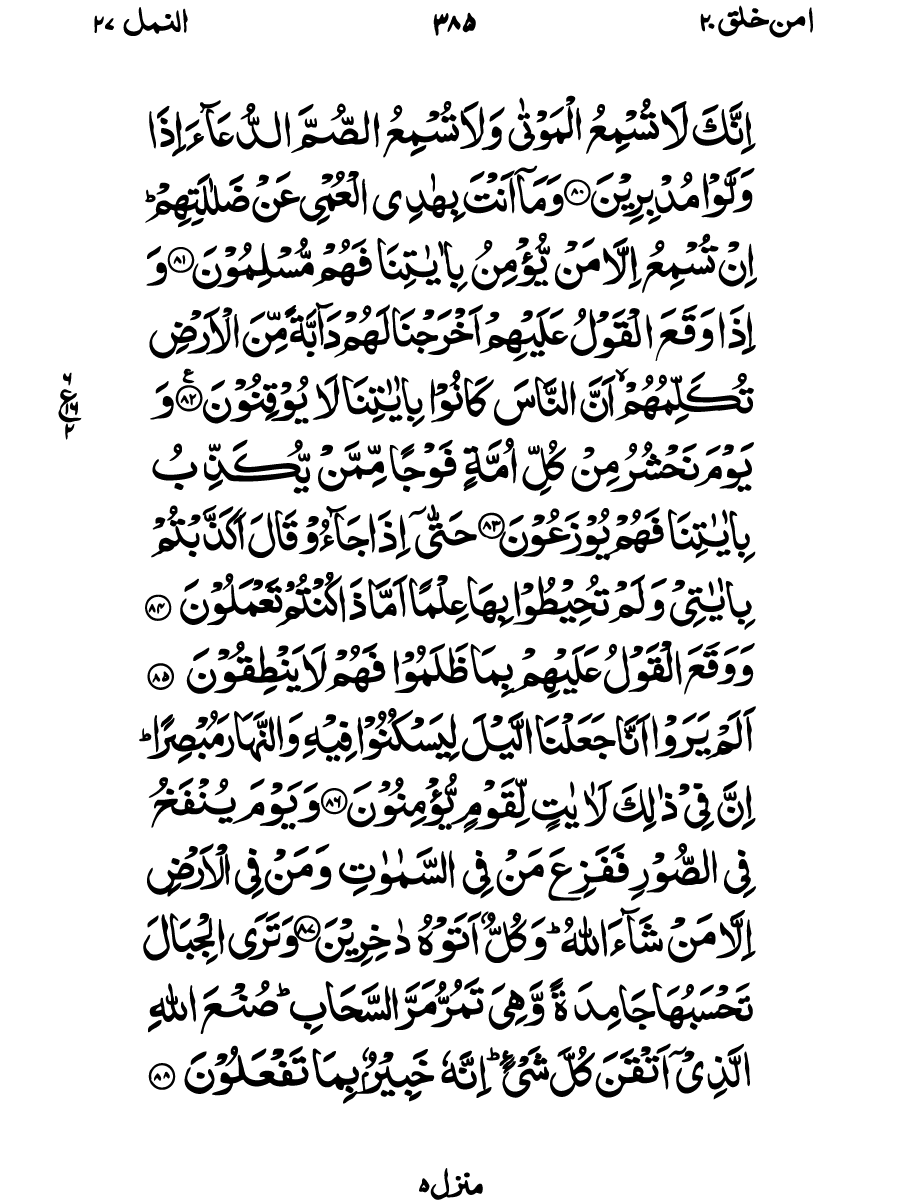 امن خلق ۲۰ ۳۸۵ النمل ۲۷
اِنَّكَ لَا تُسْمِعُ الْمَوْتٰى وَلَا تُسْمِعُ الصُّمَّ الدُّعَآءَ اِذَا
وَلَّوْا مُدْبِرِيْنَ ﴿۸۰﴾ وَمَاۤ اَنْتَ بِهٰدِى الْعُمْىِ عَنْ ضَلٰلَتِهِمْ ؕ
اِنْ تُسْمِعُ اِلَّا مَنْ يُّؤْمِنُ بِاٰيٰتِنَا فَهُمْ مُّسْلِمُوْنَ ﴿۸۱﴾ وَ
اِذَا وَقَعَ الْقَوْلُ عَلَيْهِمْ اَخْرَجْنَا لَهُمْ دَآبَّةً مِّنَ الْاَرْضِ
تُكَلِّمُهُمْ ۙ اَنَّ النَّاسَ كَانُوْا بِاٰيٰتِنَا لَا يُوْقِنُوْنَ ﴿۸۲﴾ ع وَ
۶ ع ۱۶ ۲
يَوْمَ نَحْشُرُ مِنْ كُلِّ اُمَّةٍ فَوْجًا مِّمَّنْ يُّكَذِّبُ
بِاٰيٰتِنَا فَهُمْ يُوْزَعُوْنَ ﴿۸۳﴾ حَتّٰٓى اِذَا جَآءُوْ قَالَ اَكَذَّبْتُمْ
بِاٰيٰتِىْ وَلَمْ تُحِيْطُوْا بِهَا عِلْمًا اَمَّا ذَا كُنْتُمْ تَعْمَلُوْنَ ﴿۸۴﴾
وَوَقَعَ الْقَوْلُ عَلَيْهِمْ بِمَا ظَلَمُوْا فَهُمْ لَا يَنْطِقُوْنَ ﴿۸۵﴾
اَلَمْ يَرَوْا اَنَّا جَعَلْنَا الَّيْلَ لِيَسْكُنُوْا فِيْهِ وَالنَّهَارَ مُبْصِرًا ؕ
اِنَّ فِىْ ذٰلِكَ لَاٰيٰتٍ لِّقَوْمٍ يُّؤْمِنُوْنَ ﴿۸۶﴾ وَيَوْمَ يُنْفَخُ
فِى الصُّوْرِ فَفَزِعَ مَنْ فِى السَّمٰوٰتِ وَمَنْ فِى الْاَرْضِ
اِلَّا مَنْ شَآءَ اللّٰهُ ؕ وَكُلٌّ اَتَوْهُ دٰخِرِيْنَ ﴿۸۷﴾ وَتَرَى الْجِبَالَ
تَحْسَبُهَا جَامِدَةً وَّهِىَ تَمُرُّ مَرَّ السَّحَابِ ؕ صُنْعَ اللّٰهِ
الَّذِىْۤ اَتْقَنَ كُلَّ شَىْءٍ ؕ اِنَّهٗ خَبِيْرٌۢ بِمَا تَفْعَلُوْنَ ﴿۸۸﴾
منزل ۵